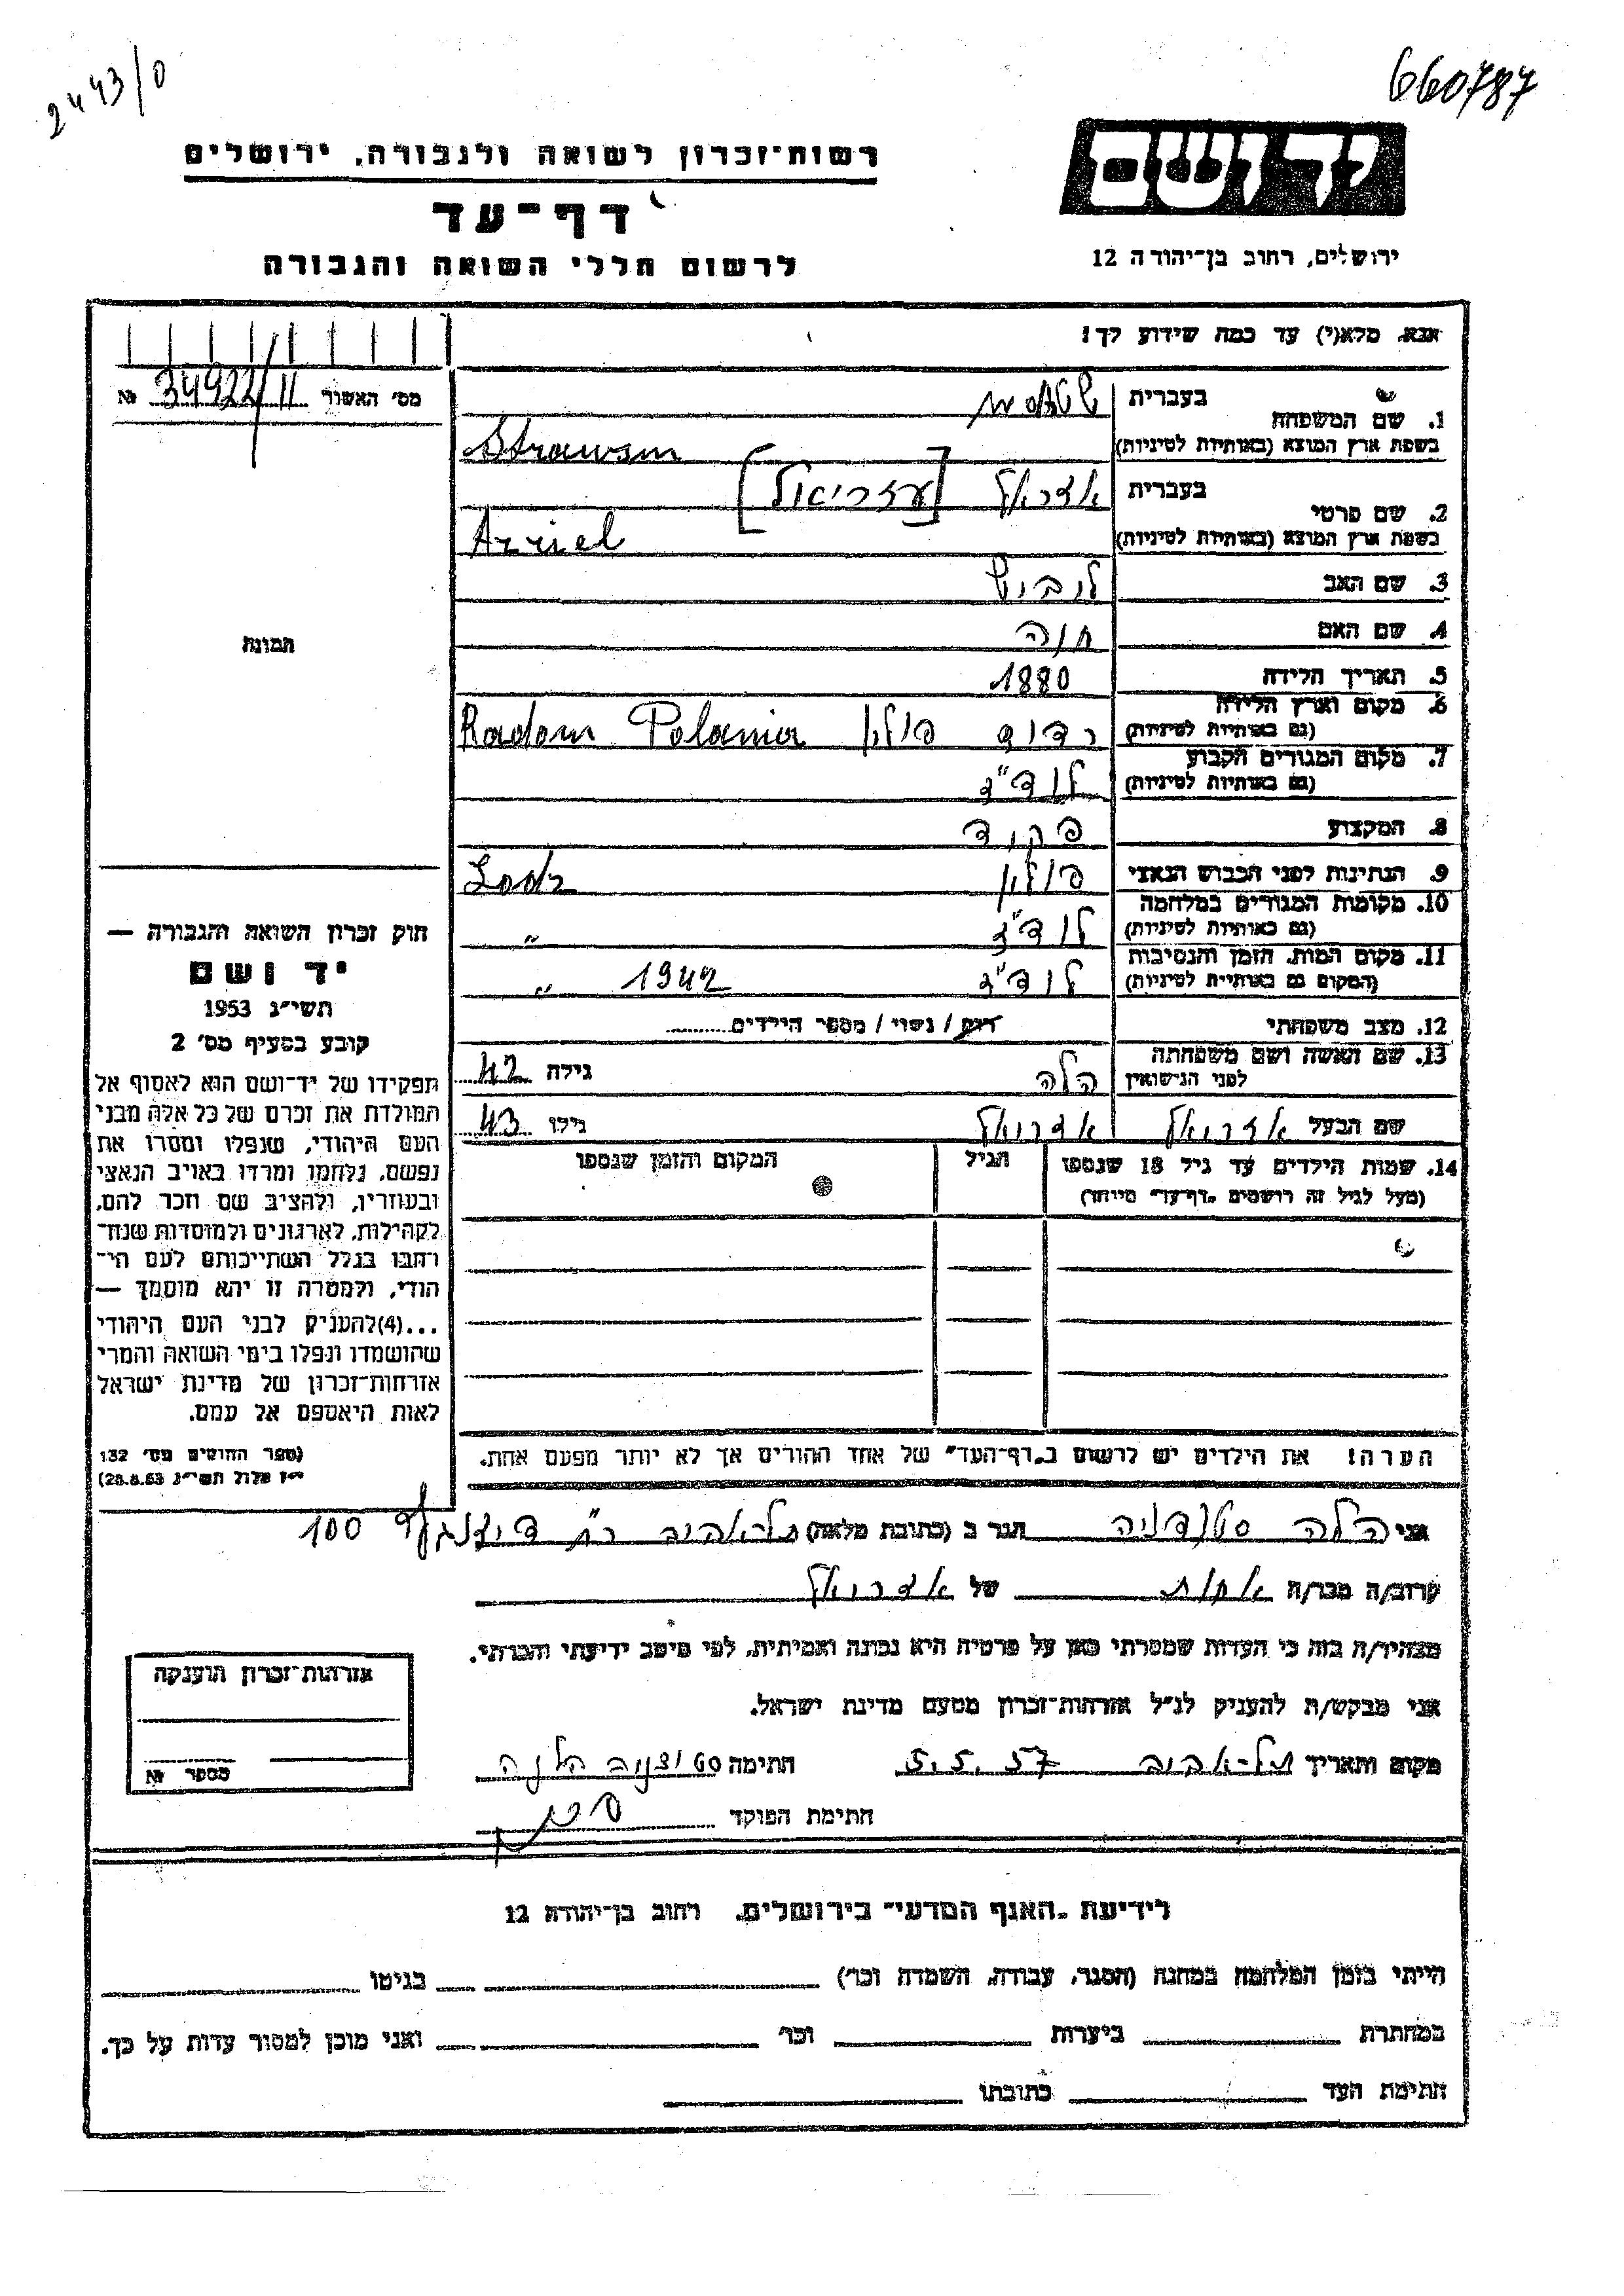 2443/0
660787
רשות־זכרון לשואה ולגבורה, ירושלים
דף־עד
לרשום חללי השואה והגבורה
יד ושם
ירושלים, רחוב בן־יהודה 12
אנא, מלא(י) עד כמה שידוע לך!
מס׳ האשור 34922/11 №
1. שם המשפחה
בעברית
בשפת ארץ המוצא (באותיות לטיניות)
2. שם פרטי
בעברית [עזריאל]
בשפת ארץ המוצא (באותיות לטיניות) Azriel
3. שם האב
4. שם האם חוה
5. תאריך הלידה 1880
6. מקום וארץ הלידה
(גם באותיות לטיניות) רדום פולין Radom Polania
7. מקום המגורים הקבוע
(גם באותיות לטיניות) לודז׳
8. המקצוע פקיד
9. הנתינות לפני הכבוש הנאצי פולין Lodz
10. מקומות המגורים במלחמה
(גם באותיות לטיניות) לודז׳ "
11. מקום המות, הזמן והנסיבות
(המקום גם באותיית לטיניות) לודז׳ 1942 "
12. מצב משפחתי רווק / נשוי / מספר הילדים
13. שם האשה ושם משפחתה
לפני הנישואין הלה גילה 42
שם הבעל גילו 43
14. שמות הילדים עד גיל 18 שנספו
(מעל לגיל זה רושמים „דף־עד״ מיוחד)
הגיל
המקום והזמן שנספו
הערה! את הילדים יש לרשום ב„דף־העד״ של אחד ההורים אך לא יותר מפעם אחת.
תמונה
חוק זכרון השואה והגבורה —
יד ושם
תשי״ג 1953
קובע בסעיף מס׳ 2
תפקידו של יד־ושם הוא לאסוף אל
המולדת את זכרם של כל אלה מבני
העם היהודי, שנפלו ומסרו את
נפשם, נלחמו ומרדו באויב הנאצי
ובעוזריו, ולהציב שם וזכר להם,
לקהילות, לארגונים ולמוסדות שנח־
רחבו בגלל השתייכותם לעם הי־
הודי, ולמטרה זו יהא מוסמך —
...(4)להעניק לבני העם היהודי
שהושמדו ונפלו בימי השואה והמרי
אזרחות־זכרון של מדינת ישראל
לאות היאספם אל עמם.
(ספר החוקים מס׳ 132
י״ז אלול תשי״ג 28.8.53)
אני הלה הגר ב (כתובת מלאה) תל־אביב רח׳ דיזנגוף 100
קרוב/ה מכר/ה אחות של
מצהיר/ה בזה כי העדות שמסרתי כאן על פרטיה היא נכונה ואמיתית, לפי מיטב ידיעתי והכרתי.
אני מבקש/ת להעניק לנ״ל אזרחות־זכרון מטעם מדינת ישראל.
מקום ותאריך תל־אביב 5.5.57 חתימה
חתימת הפוקד
אזרחות־זכרון הוענקה
מספר №
לידיעת „האגף המדעי״ בירושלים, רחוב בן־יהודה 12
הייתי בזמן המלחמה במחנה (הסגר, עבודה, השמדה וכו׳) בגיטו
במחתרת ביערות וכו׳ ואני מוכן למסור עדות על כך.
חתימת העד כתובתו